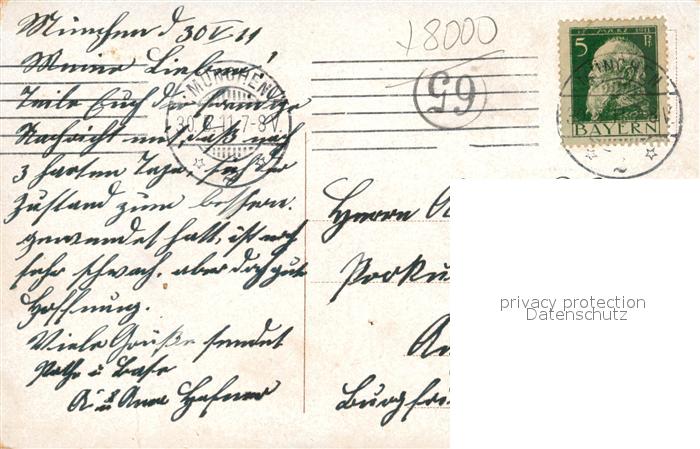 München d 30/V 11
Meine Lieben!
Teile Euch die
Nachricht mit, daß nach
3 harten Tagen, sich der
Zustand zum bessern.
gewendet hatt, ist noch
sehr schwach. aber doch gute
Hoffnung.
Viele Grüße sendet
Pathe u Base
A. u Anna Hafner
18000
65
MÜNCHEN
30. V. 11. 7-8 V.
12. MÄRZ 1911
5 Pf
BAYERN
Herrn A
Proku
Burgfri
privacy protection
Datenschutz